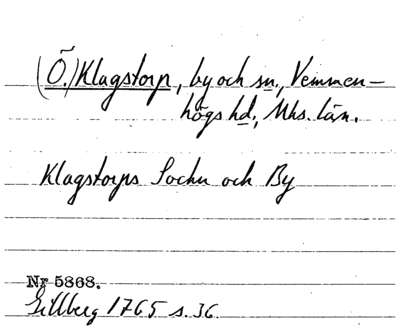 (Ö.) Klagstorp, by och sn., Vemmen-
högs hd., Mhs. län.
Klagstorps Sochn och By
Nr 5868.
Gillberg 1765 s. 36.